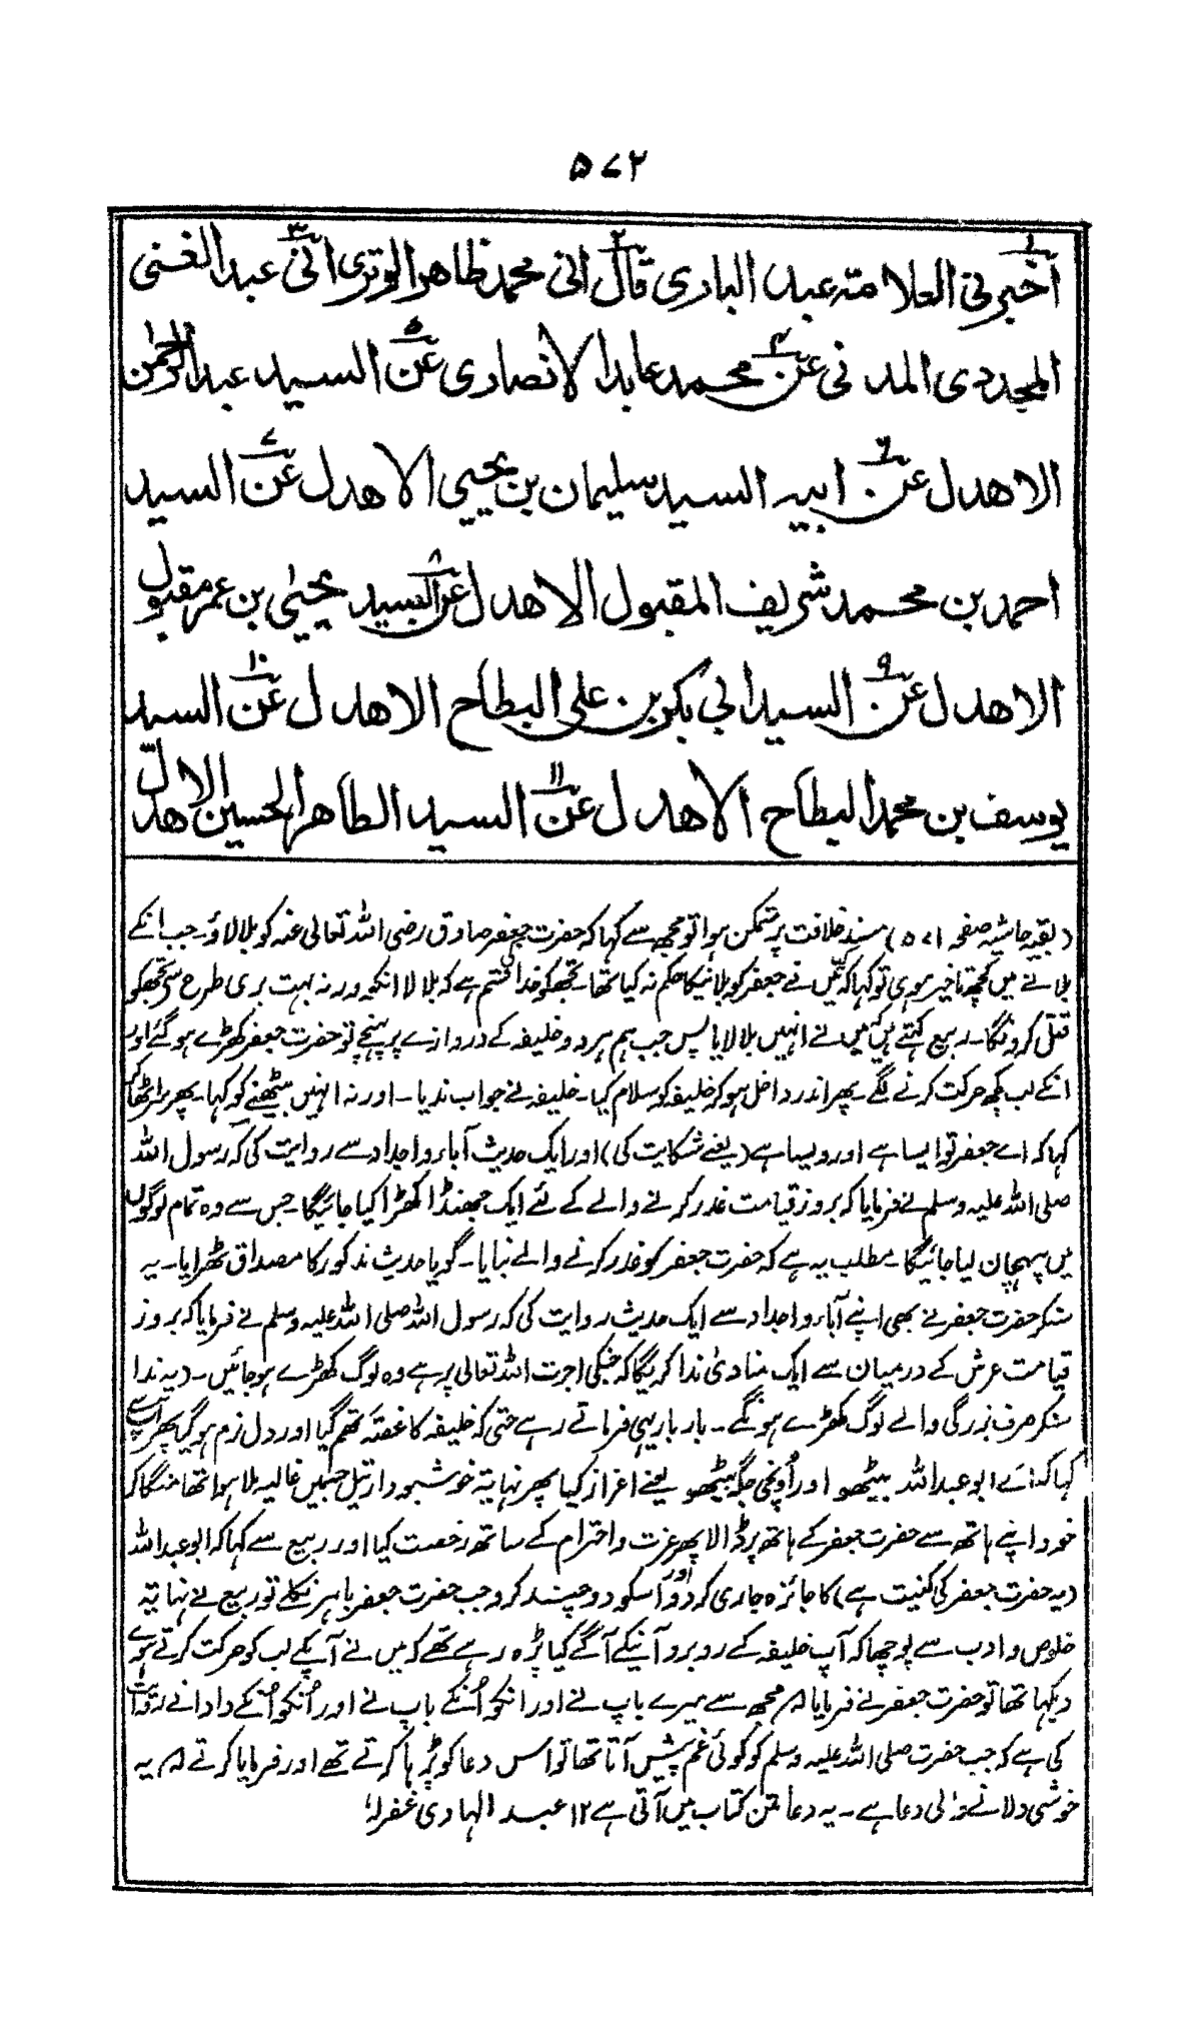 ۵۷۲
۱
اخبرنی العلامۃ عبد الباری قال۲ انی محمد ظاھر الوتری انی۳ عبد الغنی
المجددی المدنی عن۴ محمد عابد الانصاری عن۵ السید عبد الرحمٰن
الاھدل عن۶ ابیہ السید سلیمان بن یحیی الاھدل عن۷ السید
احمد بن محمد شریف المقبول الاھدل عن۸ السید یحیٰی بن عمر مقبول
الاھدل عن۹ السید ابی بکر بن علی البطاح الاھدل عن۱۰ السید
یوسف بن محمد البطاح الاھدل عن۱۱ السید الطاھر الحسین الاھدل
(بقیہ حاشیہ صفحہ ۵۷۱) مسند خلافت پر متمکن ہوا تو مجھ سے کہا کہ حضرت جعفر صادق رضی اللہ تعالی عنہ کو بلا لاؤ۔ جب انکے
بلانے میں کچھ تاخیر ہوی تو کہا کہ میں نے جعفر کو بلانیکا حکم نہ کیا تھا۔ تجھکو خدا کی قسم ہے کہ بلا لا انکو ورنہ بہت بری طرح سے تجھکو
قتل کرونگا۔ ربیع کہتے ہیں کہ میں نے انہیں بلا لایا پس جب ہم ہر دو خلیفہ کے دروازے پر پہنچے تو حضرت جعفر کھڑے ہو گئے اور
انکے لب کچھ حرکت کرنے لگے۔ پھر اندر داخل ہو کر خلیفہ کو سلام کیا۔ خلیفہ نے جواب ندیا۔ اور نہ انہیں بیٹھنے کو کہا۔ پھر سر اٹھا کر
کہا کہ اے جعفر تو ایسا ہے اور ویسا ہے (یعنے شکایت کی) اور ایک حدیث آباء و اجداد سے روایت کی کہ رسول اللہ
صلی اللہ علیہ وسلم نے فرمایا کہ بروز قیامت غدر کرنے والے کے لئے ایک جھنڈا کھڑا کیا جائیگا جس سے وہ تمام لوگوں
میں پہچان لیا جائیگا۔ مطلب یہ ہے کہ حضرت جعفر کو غدر کرنے والے بنایا۔ گویا حدیث مذکور کا مصداق ٹھرایا۔ یہ
سنکر حضرت جعفر نے بھی اپنے آباء و اجداد سے ایک حدیث روایت کی کہ رسول اللہ صلی اللہ علیہ وسلم نے فرمایا کہ بروز
قیامت عرش کے درمیان سے ایک منادی ندا کریگا کہ جنکی اجرت اللہ تعالی پر ہے وہ لوگ کھڑے ہو جائیں۔ (یہ ندا
سنکر صرف بزرگی والے لوگ کھڑے ہونگے۔ بار بار یہی فرماتے رہے حتی کہ خلیفہ کا غصّہ تھم گیا اور دل نرم ہو گیا پھر آپ سے
کہا کہ اے ابو عبد اللہ بیٹھو اور اُونچی جگہ بیٹھو یعنے اعزاز کیا پھر نہایۃ خوشبودار تیل جسمیں غالیہ ملا ہوا تھا منگا کر
خود اپنے ہاتھ سے حضرت جعفر کے ہاتھ پر ڈالا پھر عزت و احترام کے ساتھ رخصت کیا اور ربیع سے کہا کہ ابو عبد اللہ
(یہ حضرت جعفر کی کنیت ہے) کا جائزہ جاری کر دو اور اسکو دو چند کرو جب حضرت جعفر باہر نکلے تو ربیع نے نہایۃ
خلوص و ادب سے پوچھا کہ آپ خلیفہ کے روبرو آنیکے آگے کیا پڑہ رہے تھے کہ میں نے آپکے لب کو حرکت کرتے ہوے
دیکہا تھا تو حضرت جعفر نے فرمایا کہ مجھ سے میرے باپ نے اور انکو اُنکے باپ نے اور اُنکو اُنکے دادا نے روایت
کی ہے کہ جب حضرت صلی اللہ علیہ وسلم کو کوئی غم پیش آتا تھا تو اس دعا کو پڑہا کرتے تھے اور فرمایا کرتے کہ یہ
خوشی دلانے والی دعا ہے۔ یہ دعا متن کتاب میں آتی ہے ۱۲ عبد الہادی غفرلہ